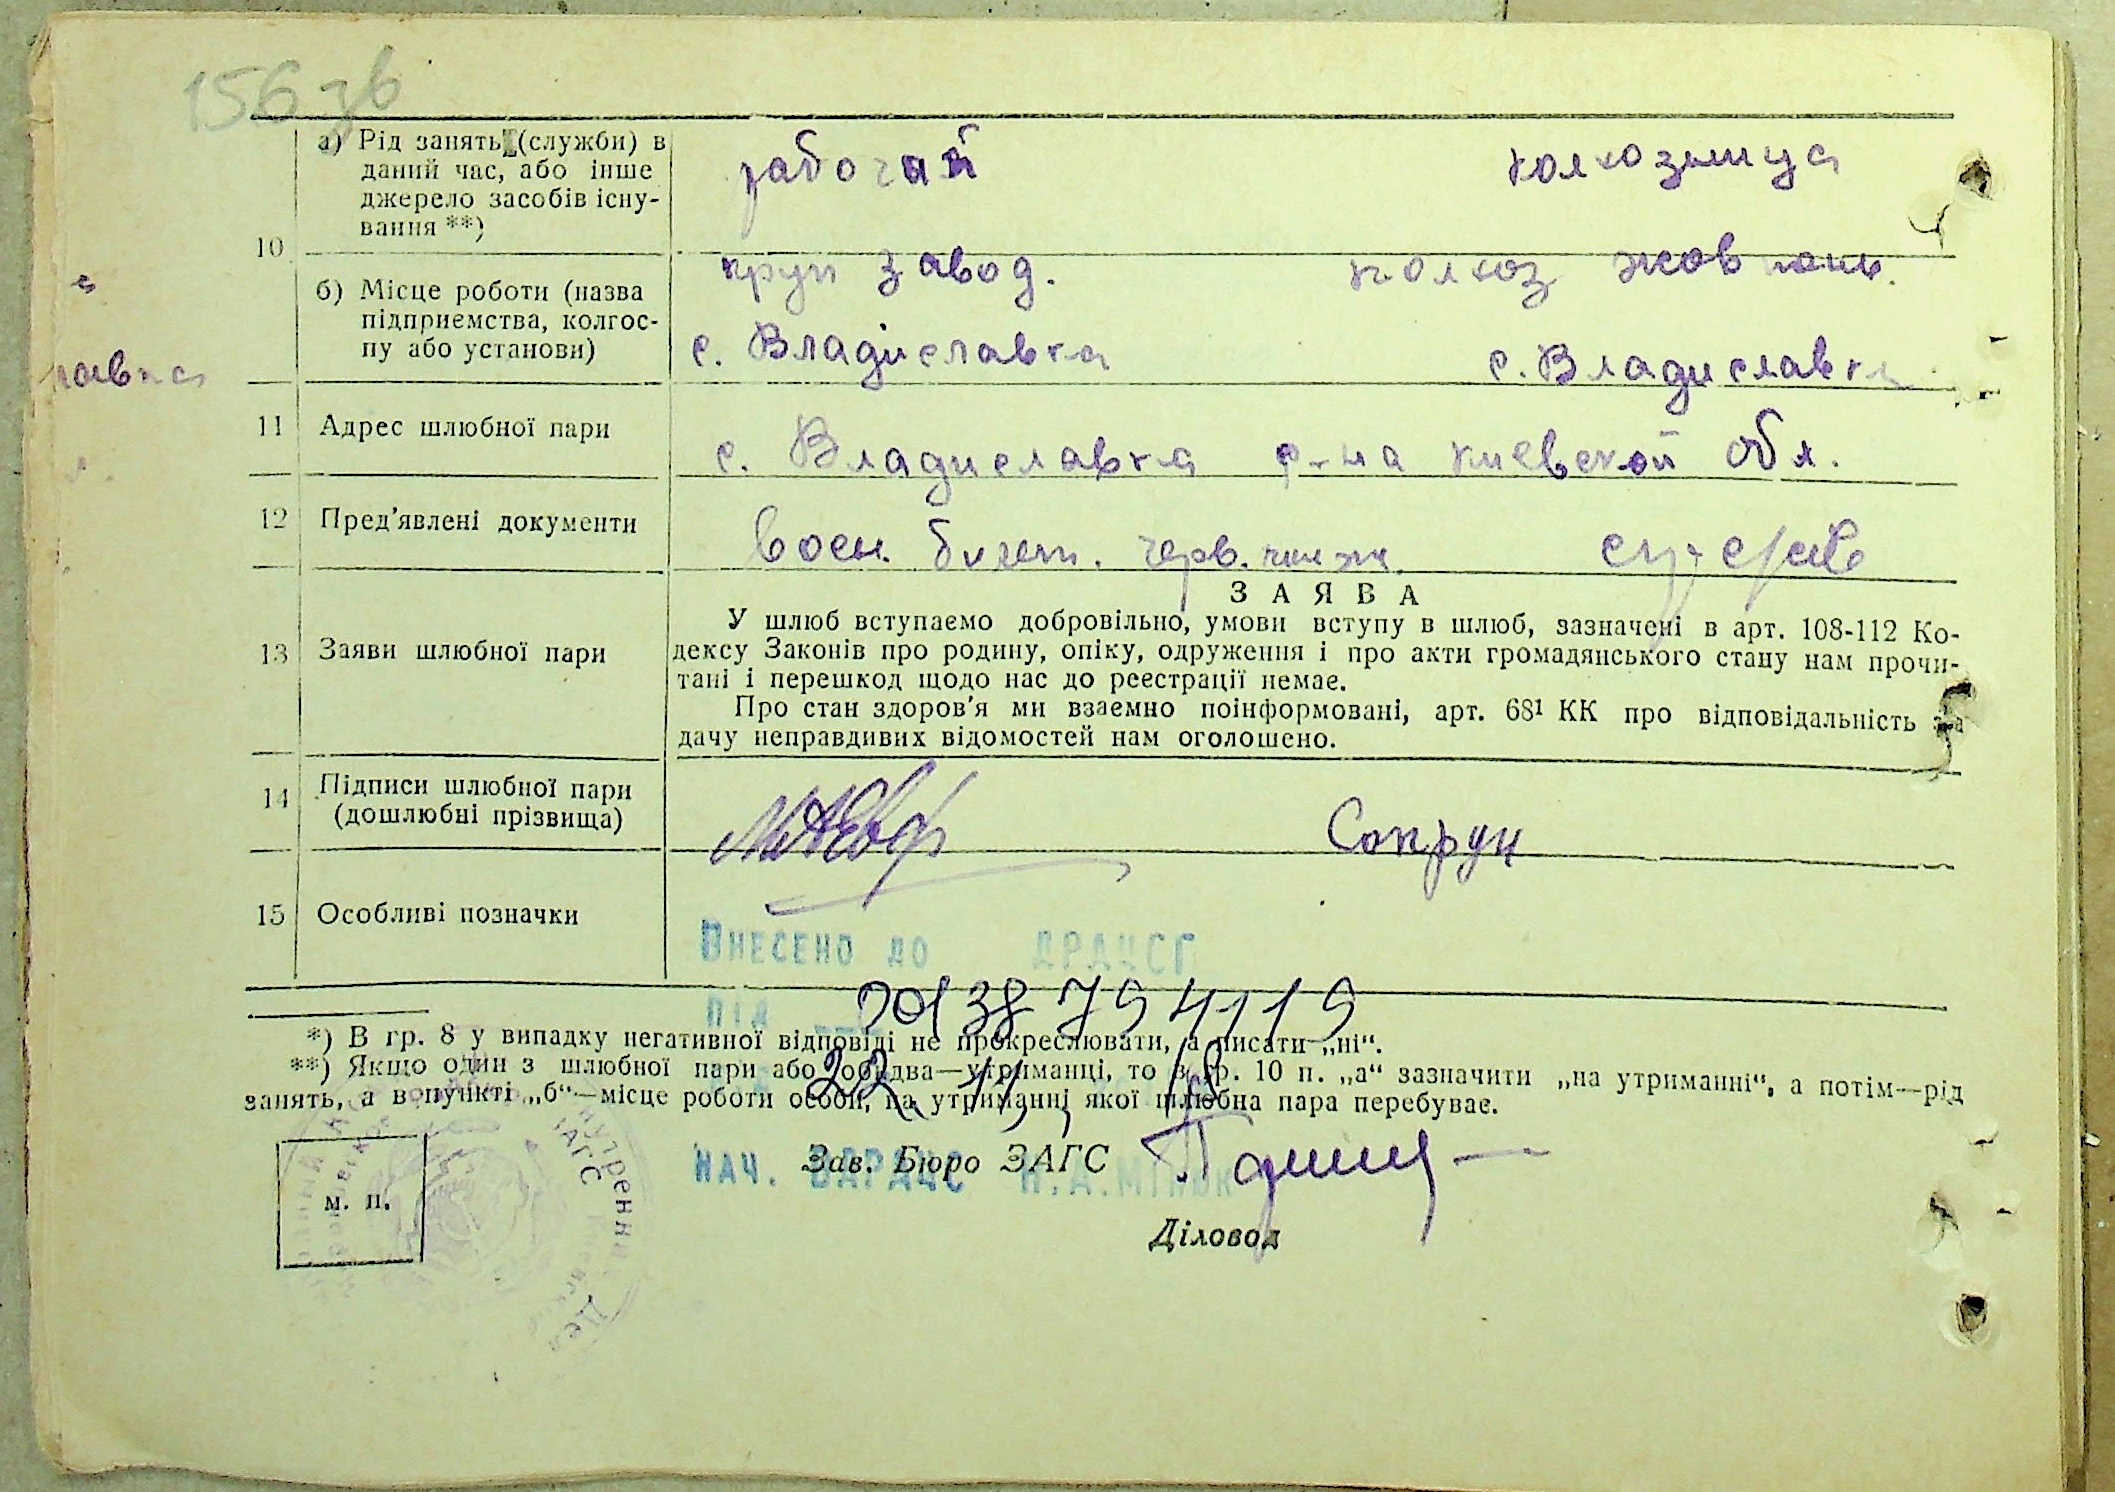 156 зв
10
а) Рід занять (служби) в
даний час, або інше
джерело засобів існу-
вання **)
рабочий
колхозница
б) Місце роботи (назва
підприємства, колгос-
пу або установи)
круп завод.
колхоз жовтень.
с. Владиславка
с. Владиславка
11 Адрес шлюбної пари
с. Владиславка р-на киевской обл.
12 Пред'явлені документи
воен. билет.
13 Заяви шлюбної пари
ЗАЯВА
У шлюб вступаємо добровільно, умови вступу в шлюб, зазначені в арт. 108-112 Ко-
дексу Законів про родину, опіку, одруження і про акти громадянського стану нам прочи-
тані і перешкод щодо нас до реєстрації немає.
Про стан здоров'я ми взаємно поінформовані, арт. 68¹ КК про відповідальність за
дачу неправдивих відомостей нам оголошено.
14 Підписи шлюбної пари
(дошлюбні прізвища)
Сопрун
15 Особливі позначки
Внесено до ДРАЦСГ
під 00138754119
22. 11.
*) В гр. 8 у випадку негативної відповіді не прокреслювати, а писати „ні“.
**) Якщо один з шлюбної пари або обидва—утриманці, то в гр. 10 п. „а“ зазначити „на утриманні“, а потім—рід
занять, а в пункті „б“—місце роботи особи, на утриманні якої шлюбна пара перебуває.
Зав. Бюро ЗАГС
Нач. ВДРАЦС
м. п.
ЗАГС
Діловод